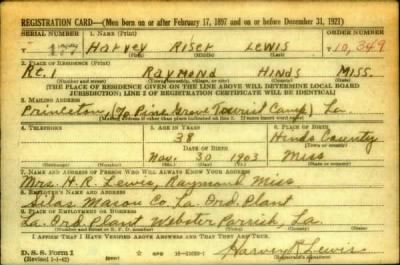 REGISTRATION CARD—(Men born on or after February 17, 1897 and on or before December 31, 1921)
SERIAL NUMBER 1. NAME (Print) ORDER NUMBER
T Harvey Riser Lewis T10,349
(First) (Middle) (Last)
2. PLACE OF RESIDENCE (Print)
Rt. 1 Raymond Hinds Miss.
(Number and street) (Town, township, village, or city) (County) (State)
[THE PLACE OF RESIDENCE GIVEN ON THE LINE ABOVE WILL DETERMINE LOCAL BOARD
JURISDICTION; LINE 2 OF REGISTRATION CERTIFICATE WILL BE IDENTICAL]
3. MAILING ADDRESS
Princeton (% Pine Grove Tourist Camp) La
4. TELEPHONE 5. AGE IN YEARS 6. PLACE OF BIRTH
38 Hinds County
DATE OF BIRTH (Town or county)
Nov. 30 1903 Miss
(Exchange) (Number) (Mo.) (Day) (Yr.) (State or country)
7. NAME AND ADDRESS OF PERSON WHO WILL ALWAYS KNOW YOUR ADDRESS
Mrs. H. R. Lewis, Raymond Miss
8. EMPLOYER'S NAME AND ADDRESS
Silas Mason Co. La. Ord. Plant
9. PLACE OF EMPLOYMENT OR BUSINESS
La. Ord. Plant Webster Parrish, La
(Number and street or R. F. D. number) (Town) (County) (State)
I AFFIRM THAT I HAVE VERIFIED ABOVE ANSWERS AND THAT THEY ARE TRUE.
D. S. S. Form 1 GPO
Harvey R. Lewis